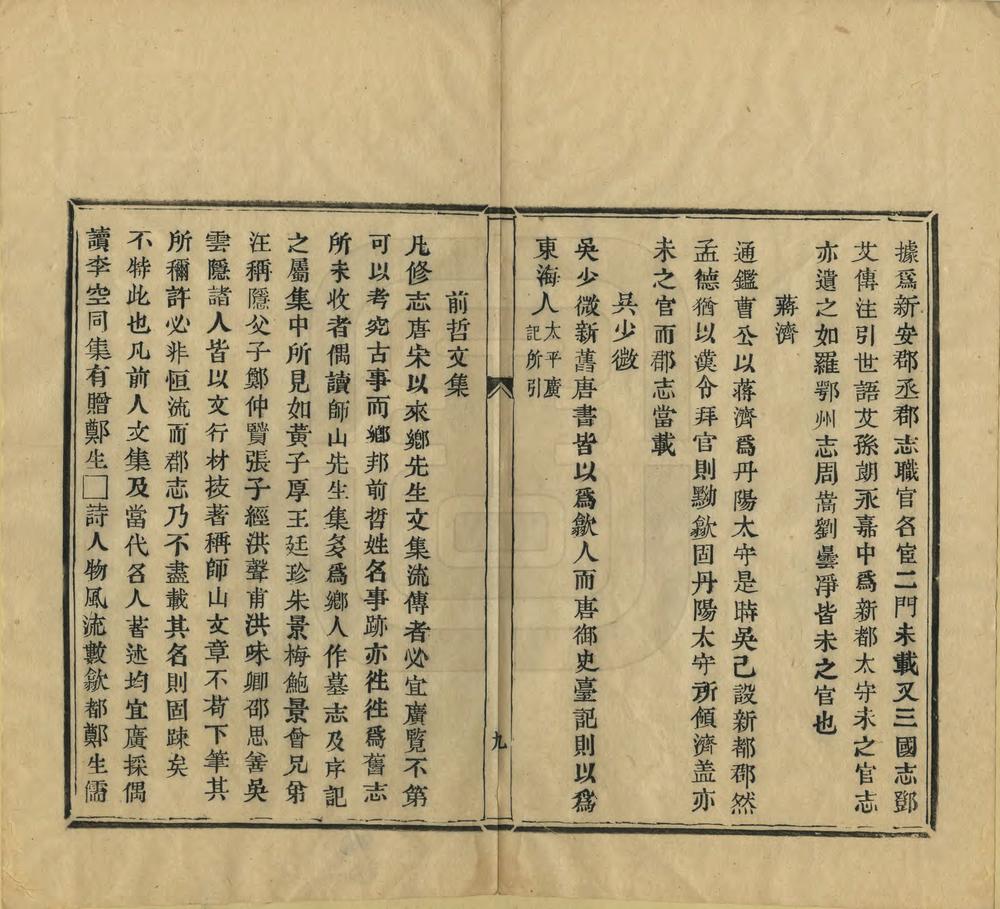 據爲新安郡丞郡志職官名宦二門未載又三國志鄧
艾傳注引世語艾孫朗永嘉中爲新都太守未之官志
亦遺之如羅鄂州志周嵩劉曇淨皆未之官也
蔣濟
通鑑曹公以蔣濟爲丹陽太守是時吳已設新都郡然
孟德猶以漢令拜官則黝歙固丹陽太守所領濟盖亦
未之官而郡志當載
吳少微
吳少微新舊唐書皆以爲歙人而唐御史臺記則以爲
東海人太平廣記所引
九
前哲文集
凡修志唐宋以來鄉先生文集流傳者必宜廣覽不第
可以考究古事而鄉邦前哲姓名事跡亦徃徃爲舊志
所未收者偶讀師山先生集多爲鄉人作墓志及序記
之屬集中所見如黃子厚王廷珍朱景梅鮑景曾兄弟
汪稱隱父子鄭仲賢張子經洪聲甫洪味卿邵思善吳
雲隱諸人皆以文行材技著稱師山文章不苟下筆其
所稱許必非恒流而郡志乃不盡載其名則固踈矣
不特此也凡前人文集及當代名人著述均宜廣採偶
讀李空同集有贈鄭生□詩人物風流數歙都鄭生儒